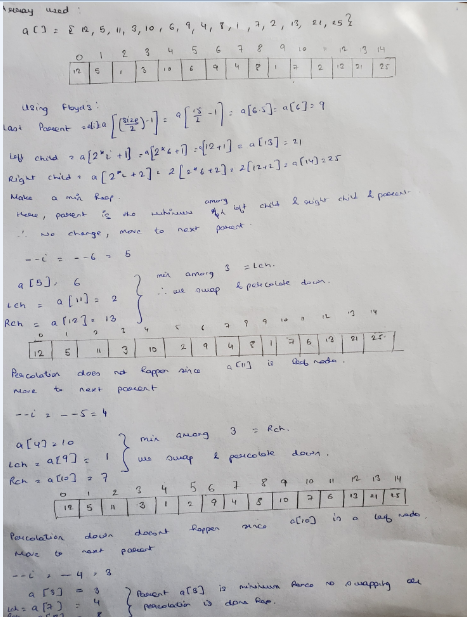 Array used :
a[] = {12, 5, 11, 3, 10, 6, 9, 4, 8, 1, 7, 2, 13, 21, 25}
0 1 2 3 4 5 6 7 8 9 10 11 12 13 14
12 5 3 10 6 9 4 8 1 7 2 13 21 25
Using Floyds :
Last Parent = a[(size/2)-1] = a[15/2 -1] = a[6.5] = a[6] = 9
Left child = a[2*i+1] = a[2*6+1] = [12+1] = a[13] = 21
Right child = a[2*i+2] = 2[2*6+2] = 2[12+2] = a[14] = 25
Make a min heap.
Here, parent is the minimum among left child & right child & parent.
∴ no change, move to next parent.
--i = --6 = 5
a[5] = 6
Lch = a[11] = 2
Rch = a[12] = 13
min among 3 = Lch.
∴ we swap & percolate down.
0 1 2 3 4 5 6 7 8 9 10 11 12 13 14
12 5 11 3 10 2 9 4 8 1 7 6 13 21 25
Percolation does not happen since a[11] is leaf node.
Move to next parent
--i = --5 = 4
a[4] = 10
Lch = a[9] = 1
Rch = a[10] = 7
min among 3 = Rch.
we swap & percolate down.
0 1 2 3 4 5 6 7 8 9 10 11 12 13 14
12 5 11 3 1 2 9 4 8 10 7 6 13 21 25
Percolation down doesnt happen since a[10] is a leaf node.
Move to next parent
--i = --4 = 3
a[3] = 3
Lch = a[7] = 4
Parent a[3] is minimum hence no swapping or
percolation is done